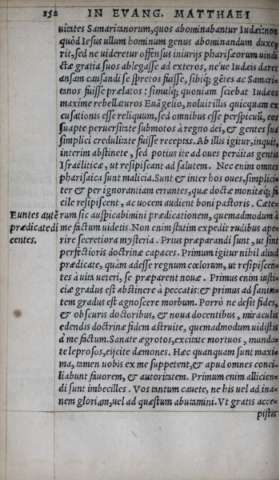 252 IN EVANG. MATTHAEI
uitates Samaritanorum, quos abominabantur Iudæi: non
quòd Iesus ullum hominum genus abominandum duxe-
rit, sed ne uideretur offensus iniurijs pharisæorum uindi-
ctæ gratia suos ablegasse ad exteros, ne'ue Iudæis daret
ansam causandi se spretos fuisse, sibiq; gētes ac Samari-
tanos fuisse prælatos: simulq; quoniam sciebat Iudæos
maxime rebellaturos Euāgelio, noluit illis quicquam ex
cusationis esse reliquum, sed omnibus esse perspicuū, eos
suapte peruersitate submotos à regno dei, & gentes sua
simplici credulitate fuisse receptas. Ab illis igitur, inquit,
interim abstinete, sed potius ite ad oues perditas gentis
Israeliticæ, ut resipiscant ad salutem. Nec enim omnes
pharisaica sunt malicia. Sunt & inter hos oues, simplici-
ter & per ignorantiam errantes, quæ doctæ monitæq; fa
cile resipiscent, ac uocem audient boni pastoris. Cæte-
Euntes aūt rum sic auspicabimini prædicationem, quemadmodum à
prædicate di me factum uidetis. Non enim statim expedit rudibus ape-
centes. rire secretiora mysteria. Prius præparandi sunt, ut sint
perfectioris doctrinæ capaces. Primum igitur nihil aliud
prædicate, quàm adesse regnum cœlorum, ut resipiscen-
tes à uita ueteri, se præparent nouæ. Primus enim iusti-
ciæ gradus est abstinere à peccatis: & primus ad sanita-
tem gradus est agnoscere morbum. Porrò ne desit fides,
& obscuris doctoribus, & noua docentibus, miraculis
edendis doctrinæ fidem astruite, quemadmodum uidistis
à me factum. Sanate ægrotos, excitate mortuos, munda-
te leprosos, eijcite dæmones. Hæc quanquam sunt maxi-
ma, tamen uobis ex me suppetent, & apud omnes conci-
liabunt fauorem, & autoritatem. Primum enim alliciendi
di sunt imbecilles. Vos tantum cauete, ne his uel ad ina-
nem gloriam, uel ad quæstum abutamini. Vt gratis acce-
pistis